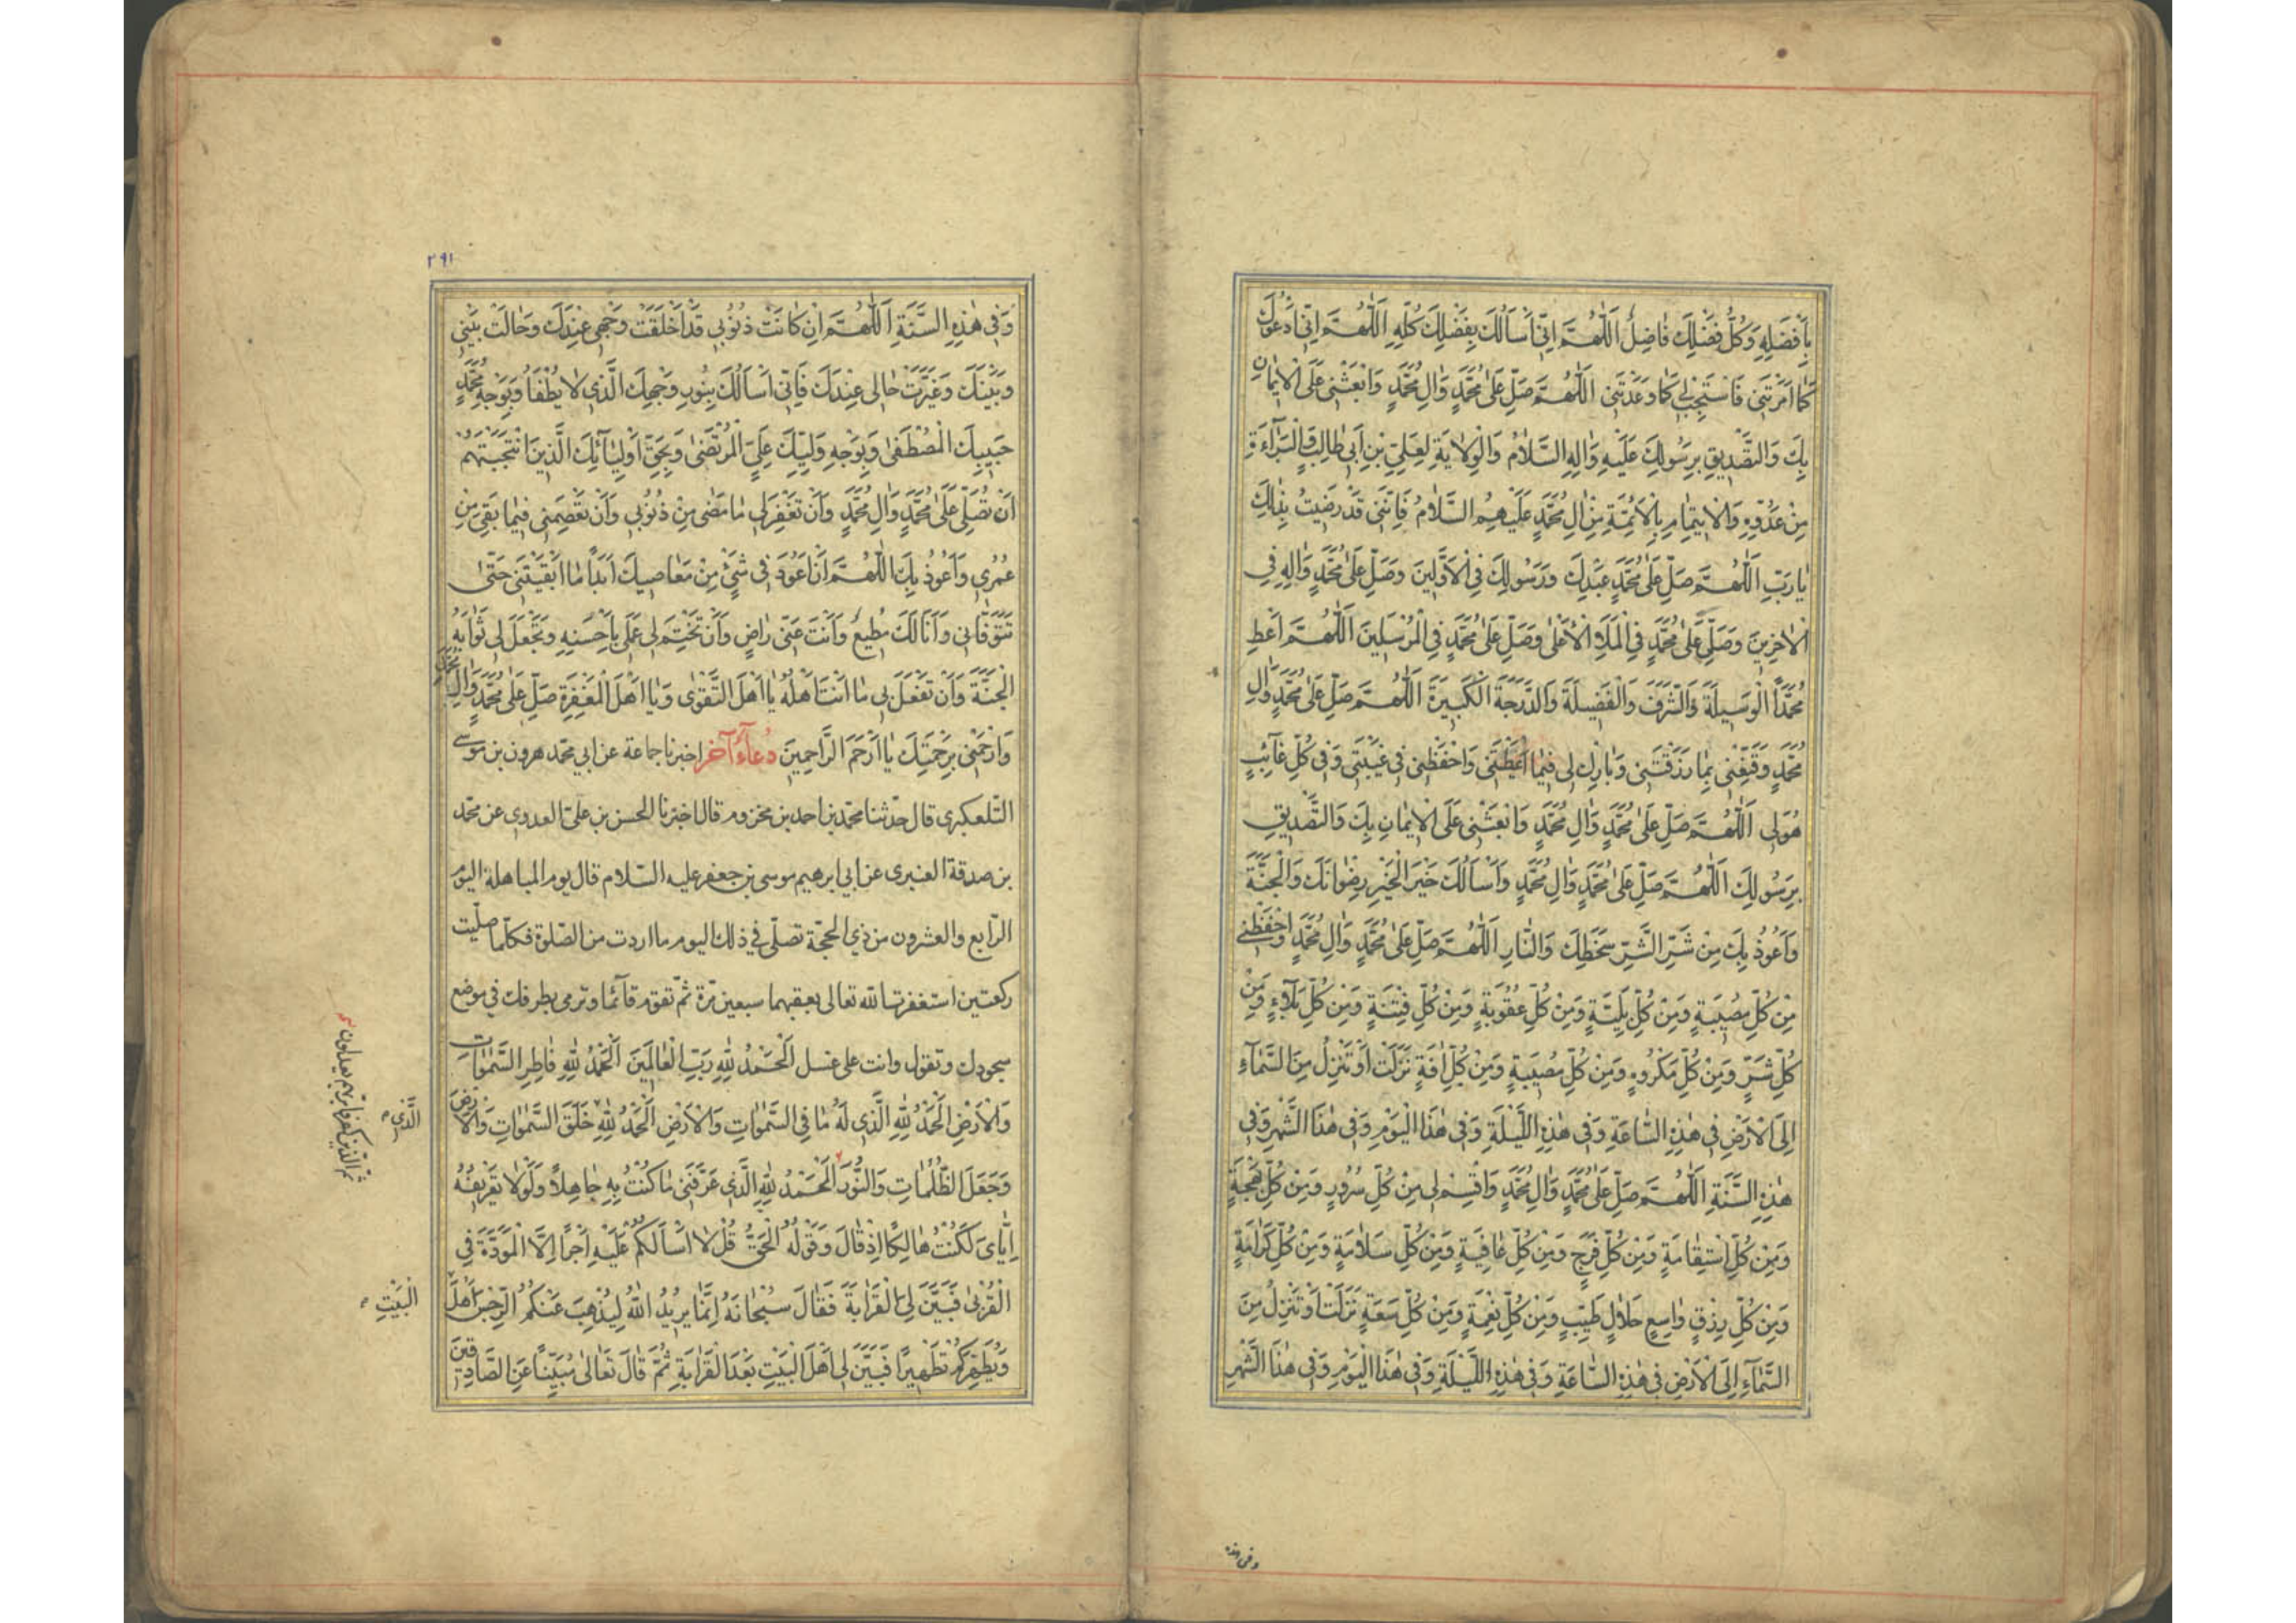 بِاَفْضَلِهِ وَكُلُّ فَضْلِكَ فَاضِلٌ اَللّٰهُمَّ اِنّى اَسْاَلُكَ بِفَضْلِكَ كُلِّهِ اَللّٰهُمَّ اِنّى اَدْعُوكَ
كَمَا اَمَرْتَنى فَاسْتَجِبْ لى كَمَا وَعَدْتَنى اَللّٰهُمَّ صَلِّ عَلىٰ مُحَمَّدٍ وَالِ مُحَمَّدٍ وَابْعَثْنى عَلَى الْايمَانِ
بِكَ وَالتَّصْديقِ بِرَسُولِكَ عَلَيْهِ وَالِهِ السَّلَامُ وَالْوِلَايَةِ لِعَلِىِّ بْنِ اَبى طَالِبٍ وَالْبَرَاۤءَةِ
مِنْ عَدُوِّهِ وَالْايتِمَامِ بِالْاَئِمَّةِ مِنْ الِ مُحَمَّدٍ عَلَيْهِمُ السَّلَامُ فَاِنَّنى قَدْ رَضيتُ بِذٰلِكَ
يَا رَبِّ اَللّٰهُمَّ صَلِّ عَلىٰ مُحَمَّدٍ عَبْدِكَ وَرَسُولِكَ فِى الْاَوَّلينَ وَصَلِّ عَلىٰ مُحَمَّدٍ وَالِهِ فِى
الْاخِرينَ وَصَلِّ عَلىٰ مُحَمَّدٍ فِى الْمَلَاِ الْاَعْلىٰ وَصَلِّ عَلىٰ مُحَمَّدٍ فِى الْمُرْسَلينَ اَللّٰهُمَّ اَعْطِ
مُحَمَّداً الْوَسيلَةَ وَالشَّرَفَ وَالْفَضيلَةَ وَالدَّرَجَةَ الْكَبيرَةَ اَللّٰهُمَّ صَلِّ عَلىٰ مُحَمَّدٍ وَالِ
مُحَمَّدٍ وَقَنِّعْنى بِمَا رَزَقْتَنى وَبَارِكْ لى فيمَا اَعْطَيْتَنى وَاحْفَظْنى فى غَيْبَتى وَفى كُلِّ غَاۤئِبٍ
هُوَ لى اَللّٰهُمَّ صَلِّ عَلىٰ مُحَمَّدٍ وَالِ مُحَمَّدٍ وَابْعَثْنى عَلَى الْايمَانِ بِكَ وَالتَّصْديقِ
بِرَسُولِكَ اَللّٰهُمَّ صَلِّ عَلىٰ مُحَمَّدٍ وَالِ مُحَمَّدٍ وَاَسْاَلُكَ خَيْرَ الْخَيْرِ رِضْوَانَكَ وَالْجَنَّةَ
وَاَعُوذُ بِكَ مِنْ شَرِّ الشَّرِّ سَخَطِكَ وَالنَّارِ اَللّٰهُمَّ صَلِّ عَلىٰ مُحَمَّدٍ وَالِ مُحَمَّدٍ وَاحْفَظْنى
مِنْ كُلِّ مُصيبَةٍ وَمِنْ كُلِّ بَلِيَّةٍ وَمِنْ كُلِّ عُقُوبَةٍ وَمِنْ كُلِّ فِتْنَةٍ وَمِنْ كُلِّ بَلَاۤءٍ وَمِنْ
كُلِّ شَرٍّ وَمِنْ كُلِّ مَكْرُوهٍ وَمِنْ كُلِّ مُصيبَةٍ وَمِنْ كُلِّ افَةٍ نَزَلَتْ اَوْ تَنْزِلُ مِنَ السَّمَاۤءِ
اِلَى الْاَرْضِ فى هٰذِهِ السَّاعَةِ وَفى هٰذِهِ اللَّيْلَةِ وَفى هٰذَا الْيَوْمِ وَفى هٰذَا الشَّهْرِ وَفى
هٰذِهِ السَّنَةِ اَللّٰهُمَّ صَلِّ عَلىٰ مُحَمَّدٍ وَالِ مُحَمَّدٍ وَاقْسِمْ لى مِنْ كُلِّ سُرُورٍ وَمِنْ كُلِّ بَهْجَةٍ
وَمِنْ كُلِّ اسْتِقَامَةٍ وَمِنْ كُلِّ فَرَجٍ وَمِنْ كُلِّ عَافِيَةٍ وَمِنْ كُلِّ سَلَامَةٍ وَمِنْ كُلِّ كَرَامَةٍ
وَمِنْ كُلِّ رِزْقٍ وَاسِعٍ حَلَالٍ طَيِّبٍ وَمِنْ كُلِّ نِعْمَةٍ وَمِنْ كُلِّ سَعَةٍ نَزَلَتْ اَوْ تَنْزِلُ مِنَ
السَّمَاۤءِ اِلَى الْاَرْضِ فى هٰذِهِ السَّاعَةِ وَفى هٰذِهِ اللَّيْلَةِ وَفى هٰذَا الْيَوْمِ وَفى هٰذَا الشَّهْرِ
وفى هذه
٢٩١
وَفى هٰذِهِ السَّنَةِ اَللّٰهُمَّ اِنْ كَانَتْ ذُنُوبى قَدْ اَخْلَقَتْ وَجْهى عِنْدَكَ وَحَالَتْ بَيْنى
وَبَيْنَكَ وَغَيَّرَتْ حَالى عِنْدَكَ فَاِنّى اَسْاَلُكَ بِنُورِ وَجْهِكَ الَّذى لَا يُطْفَاُ وَبِوَجْهِ مُحَمَّدٍ
حَبيبِكَ الْمُصْطَفىٰ وَبِوَجْهِ وَلِيِّكَ عَلِىٍّ الْمُرْتَضىٰ وَبِحَقِّ اَوْلِيَاۤئِكَ الَّذينَ انْتَجَبْتَهُمْ
اَنْ تُصَلِّىَ عَلىٰ مُحَمَّدٍ وَالِ مُحَمَّدٍ وَاَنْ تَغْفِرَ لى مَا مَضىٰ مِنْ ذُنُوبى وَاَنْ تَعْصِمَنى فيمَا بَقِىَ مِنْ
عُمُرى وَاَعُوذُ بِكَ اللّٰهُمَّ اَنْ اَعُودَ فى شَىْءٍ مِنْ مَعَاصيكَ اَبَداً مَا اَبْقَيْتَنى حَتّىٰ
تَتَوَفَّانى وَاَنَا لَكَ مُطيعٌ وَاَنْتَ عَنّى رَاضٍ وَاَنْ تَخْتِمَ لى عَمَلى بِاَحْسَنِهِ وَتَجْعَلَ لى ثَوَابَهُ
الْجَنَّةَ وَاَنْ تَفْعَلَ بى مَا اَنْتَ اَهْلُهُ يَا اَهْلَ التَّقْوٰى وَيَا اَهْلَ الْمَغْفِرَةِ صَلِّ عَلىٰ مُحَمَّدٍ وَالِ مُحَمَّدٍ
وَارْحَمْنى بِرَحْمَتِكَ يَا اَرْحَمَ الرَّاحِمينَ دُعَاۤءٌ آخر اخبرنا جماعة عن ابي محمّد هرون بن موسى
التّلعكبرى قال حدّثنا محمّد بن احمد بن مخزوم قال اخبرنا الحسن بن علىّ العدوى عن محمّد
بن صدقة العنبرى عن ابي ابرهيم موسى بن جعفر عليه السّلام قال يوم المباهلة اليوم
الرّابع والعشرون من ذي الحجّة تصلّى في ذلك اليوم ما اردت من الصّلوة فكلّما صلّيت
ركعتين استغفرت الله تعالى بعقبهما سبعين مرّة ثمّ تقوم قائما وترمى بطرفك في موضع
سجودك وتقول وانت على غسل اَلْحَمْدُ لِلّٰهِ رَبِّ الْعَالَمينَ اَلْحَمْدُ لِلّٰهِ فَاطِرِ السَّمٰوَاتِ
وَالْاَرْضِ اَلْحَمْدُ لِلّٰهِ الَّذى لَهُ مَا فِى السَّمٰوَاتِ وَالْاَرْضِ اَلْحَمْدُ لِلّٰهِ خَلَقَ السَّمٰوَاتِ وَالْاَرْضَ
الَّذى
وَجَعَلَ الظُّلُمَاتِ وَالنُّورَ اَلْحَمْدُ لِلّٰهِ الَّذى عَرَّفَنى مَا كُنْتُ بِهِ جَاهِلاً وَلَوْلَا تَعْريفُهُ
ثمّ الّذين كفروا بربّهم يعدلون
اِيَّاىَ لَكُنْتُ هَالِكًا اِذْ قَالَ وَقَوْلُهُ الْحَقُّ قُلْ لَا اَسْاَلُكُمْ عَلَيْهِ اَجْرًا اِلَّا الْمَوَدَّةَ فِى
الْقُرْبىٰ فَبَيَّنَ لِىَ الْقَرَابَةَ فَقَالَ سُبْحَانَهُ اِنَّمَا يُريدُ اللّٰهُ لِيُذْهِبَ عَنْكُمُ الرِّجْسَ اَهْلَ
الْبَيْتِ
وَيُطَهِّرَكُمْ تَطْهيرًا فَبَيَّنَ لى اَهْلَ الْبَيْتِ بَعْدَ الْقَرَابَةِ ثُمَّ قَالَ تَعَالىٰ مُبَيِّنًا عَنِ الصَّادِقينَ